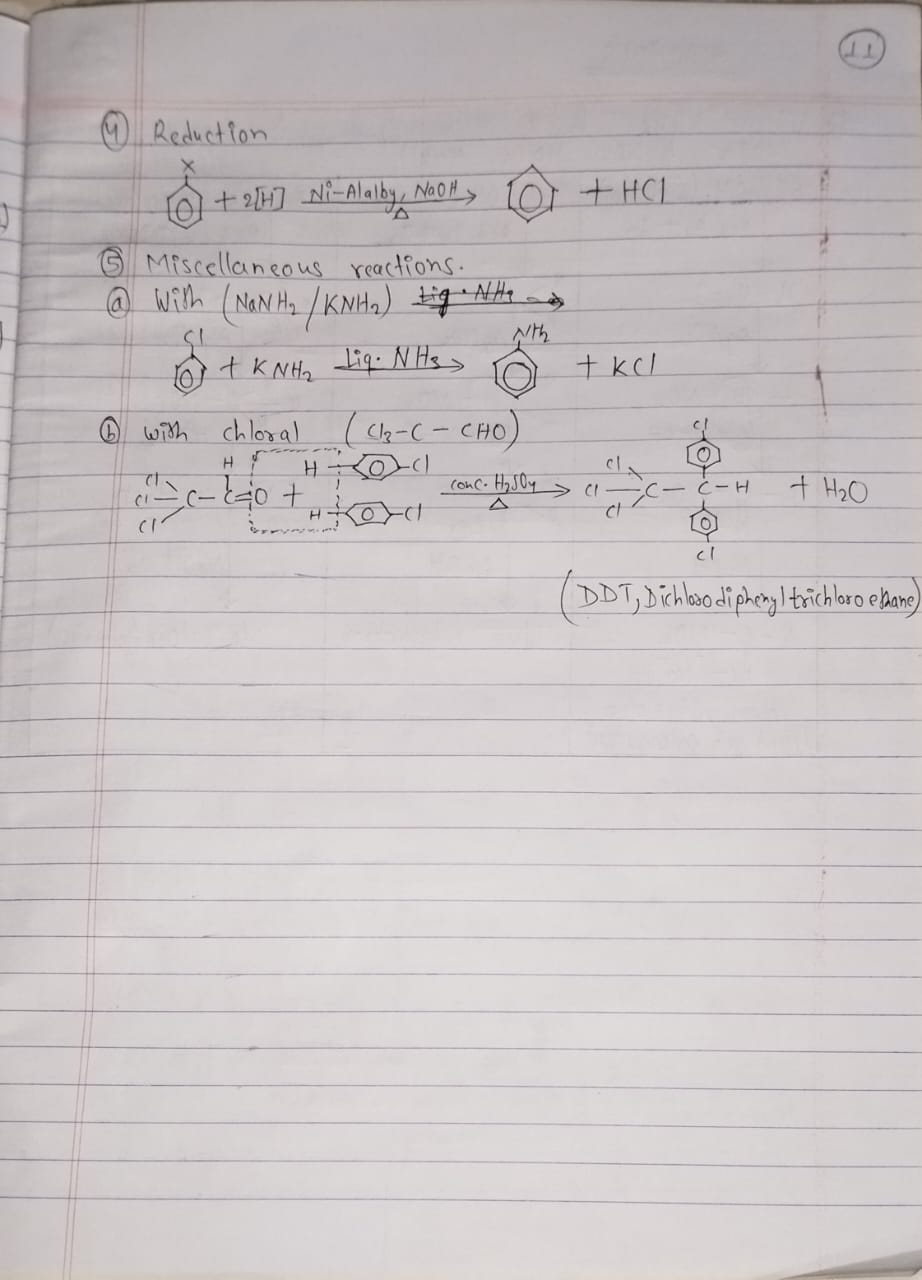 11
4 Reduction
X
+ 2[H] Ni-Alalby, NaOH → + HCl
Δ
5 Miscellaneous reactions.
a With (NaNH2 / KNH2) Liq. NH3 →
Cl NH2
+ KNH2 Liq. NH3 → + KCl
b with chloral (Cl3-C-CHO)
Cl
H H Cl Cl
Cl Cl C - C=O + conc. H2SO4 → Cl C - C - H + H2O
Cl H Cl Δ Cl
Cl
(DDT, Dichlorodiphenyltrichloroethane)